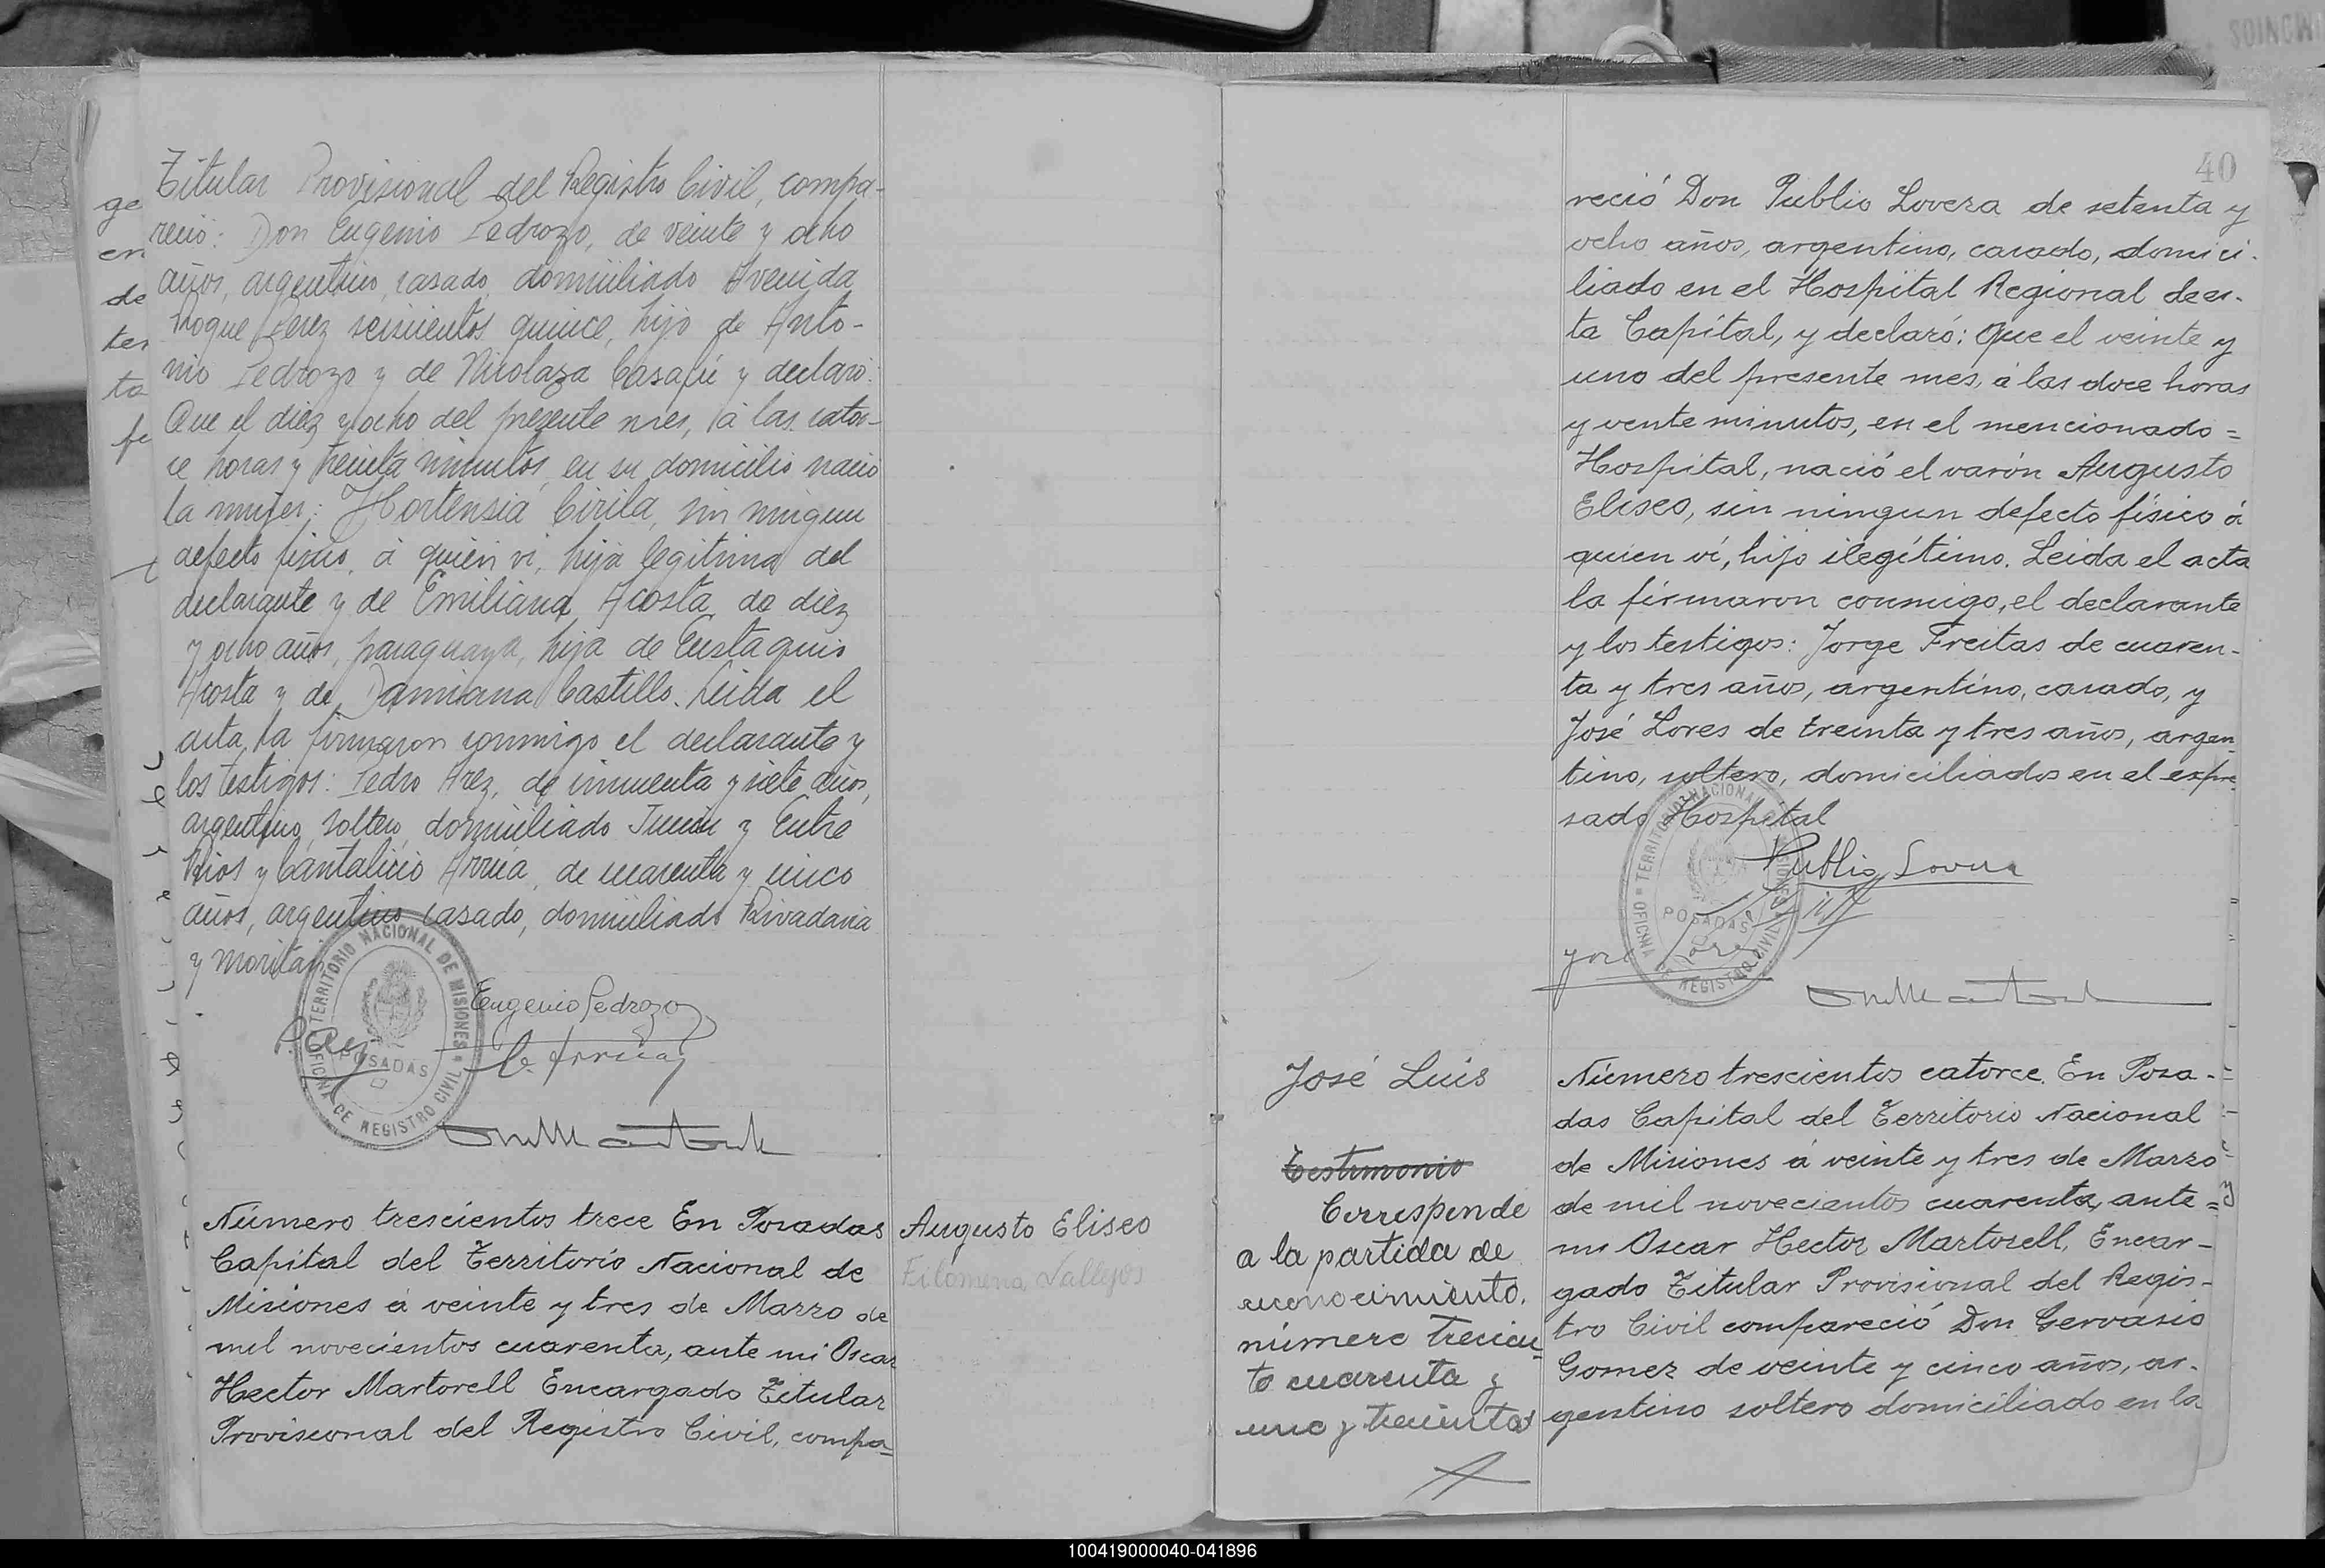 Titular Provisional del Registro Civil, compa-
reció: Don Eugenio Pedrozo, de veinte y ocho
años, argentino, casado, domiciliado Avenida
Roque Perez seiscientos quince, hijo de Anto-
nio Pedrozo y de Nicolaza Casafú y declaró:
Que el diez y ocho del presente mes, á las cator-
ce horas y treinta minutos, en su domicilio nació
la mujer: Hortensia Cirila, sin ningun
defecto fisico, á quien vi, hija legitima del
declarante y de Emiliana Acosta, de diez
y ocho años, paraguaya, hija de Eustaquio
Acosta y de Damiana Castillo. Leida el
acta, la firmaron conmigo el declarante y
los testigos: Pedro Arez, de cincuenta y siete años,
argentino, soltero, domiciliado Junin y Entre
Rios y Cantalicio Arrúa, de cuarenta y cinco
años, argentino, casado, domiciliado Rivadavia
y
TERRITORIO NACIONAL DE MISIONES
POSADAS
OFICINA DE REGISTRO CIVIL
Eugenio Pedrozo
C. Arrúa
Número trescientos trece En Posadas
Capital del Territorio Nacional de
Misiones á veinte y tres de Marzo de
mil novecientos cuarenta, ante mi Oscar
Hector Martorell Encargado Titular
Provisional del Registro Civil, compa-
Augusto Eliseo
Filomena Vallejos
ge
en
de
tes
ta
fe
40
reció Don Publio Lovera de setenta y
ocho años, argentino, casado, domici-
liado en el Hospital Regional de es-
ta Capital, y declaró: Que el veinte y
uno del presente mes, á las doce horas
y vente minutos, en el mencionado =
Hospital, nació el varón Augusto
Eliseo, sin ningun defecto físico á
quien ví, hijo ilegítimo. Leida el acta
la firmaron conmigo, el declarante
y los testigos: Jorge Freitas de cuaren-
ta y tres años, argentino, casado, y
José Lores de treinta y tres años, argen-
tino, soltero, domiciliados en el expre-
sado Hospital
Publio Lovera
TERRITORIO NACIONAL DE MISIONES
POSADAS
OFICINA DE REGISTRO CIVIL
José Luis
Testimonio
Corresponde
a la partida de
reconocimiento,
número trescien-
to cuarenta y
uno y trescientos
Número trescientos catorce. En Posa-
das Capital del Territorio Nacional
de Misiones á veinte y tres de Marzo
de mil novecientos cuarenta, ante =
mi Oscar Hector Martorell, Encar-
gado Titular Provisional del Regis-
tro Civil compareció Don Gervasio
Gomez de veinte y cinco años, ar-
gentino soltero domiciliado en la
100419000040-041896